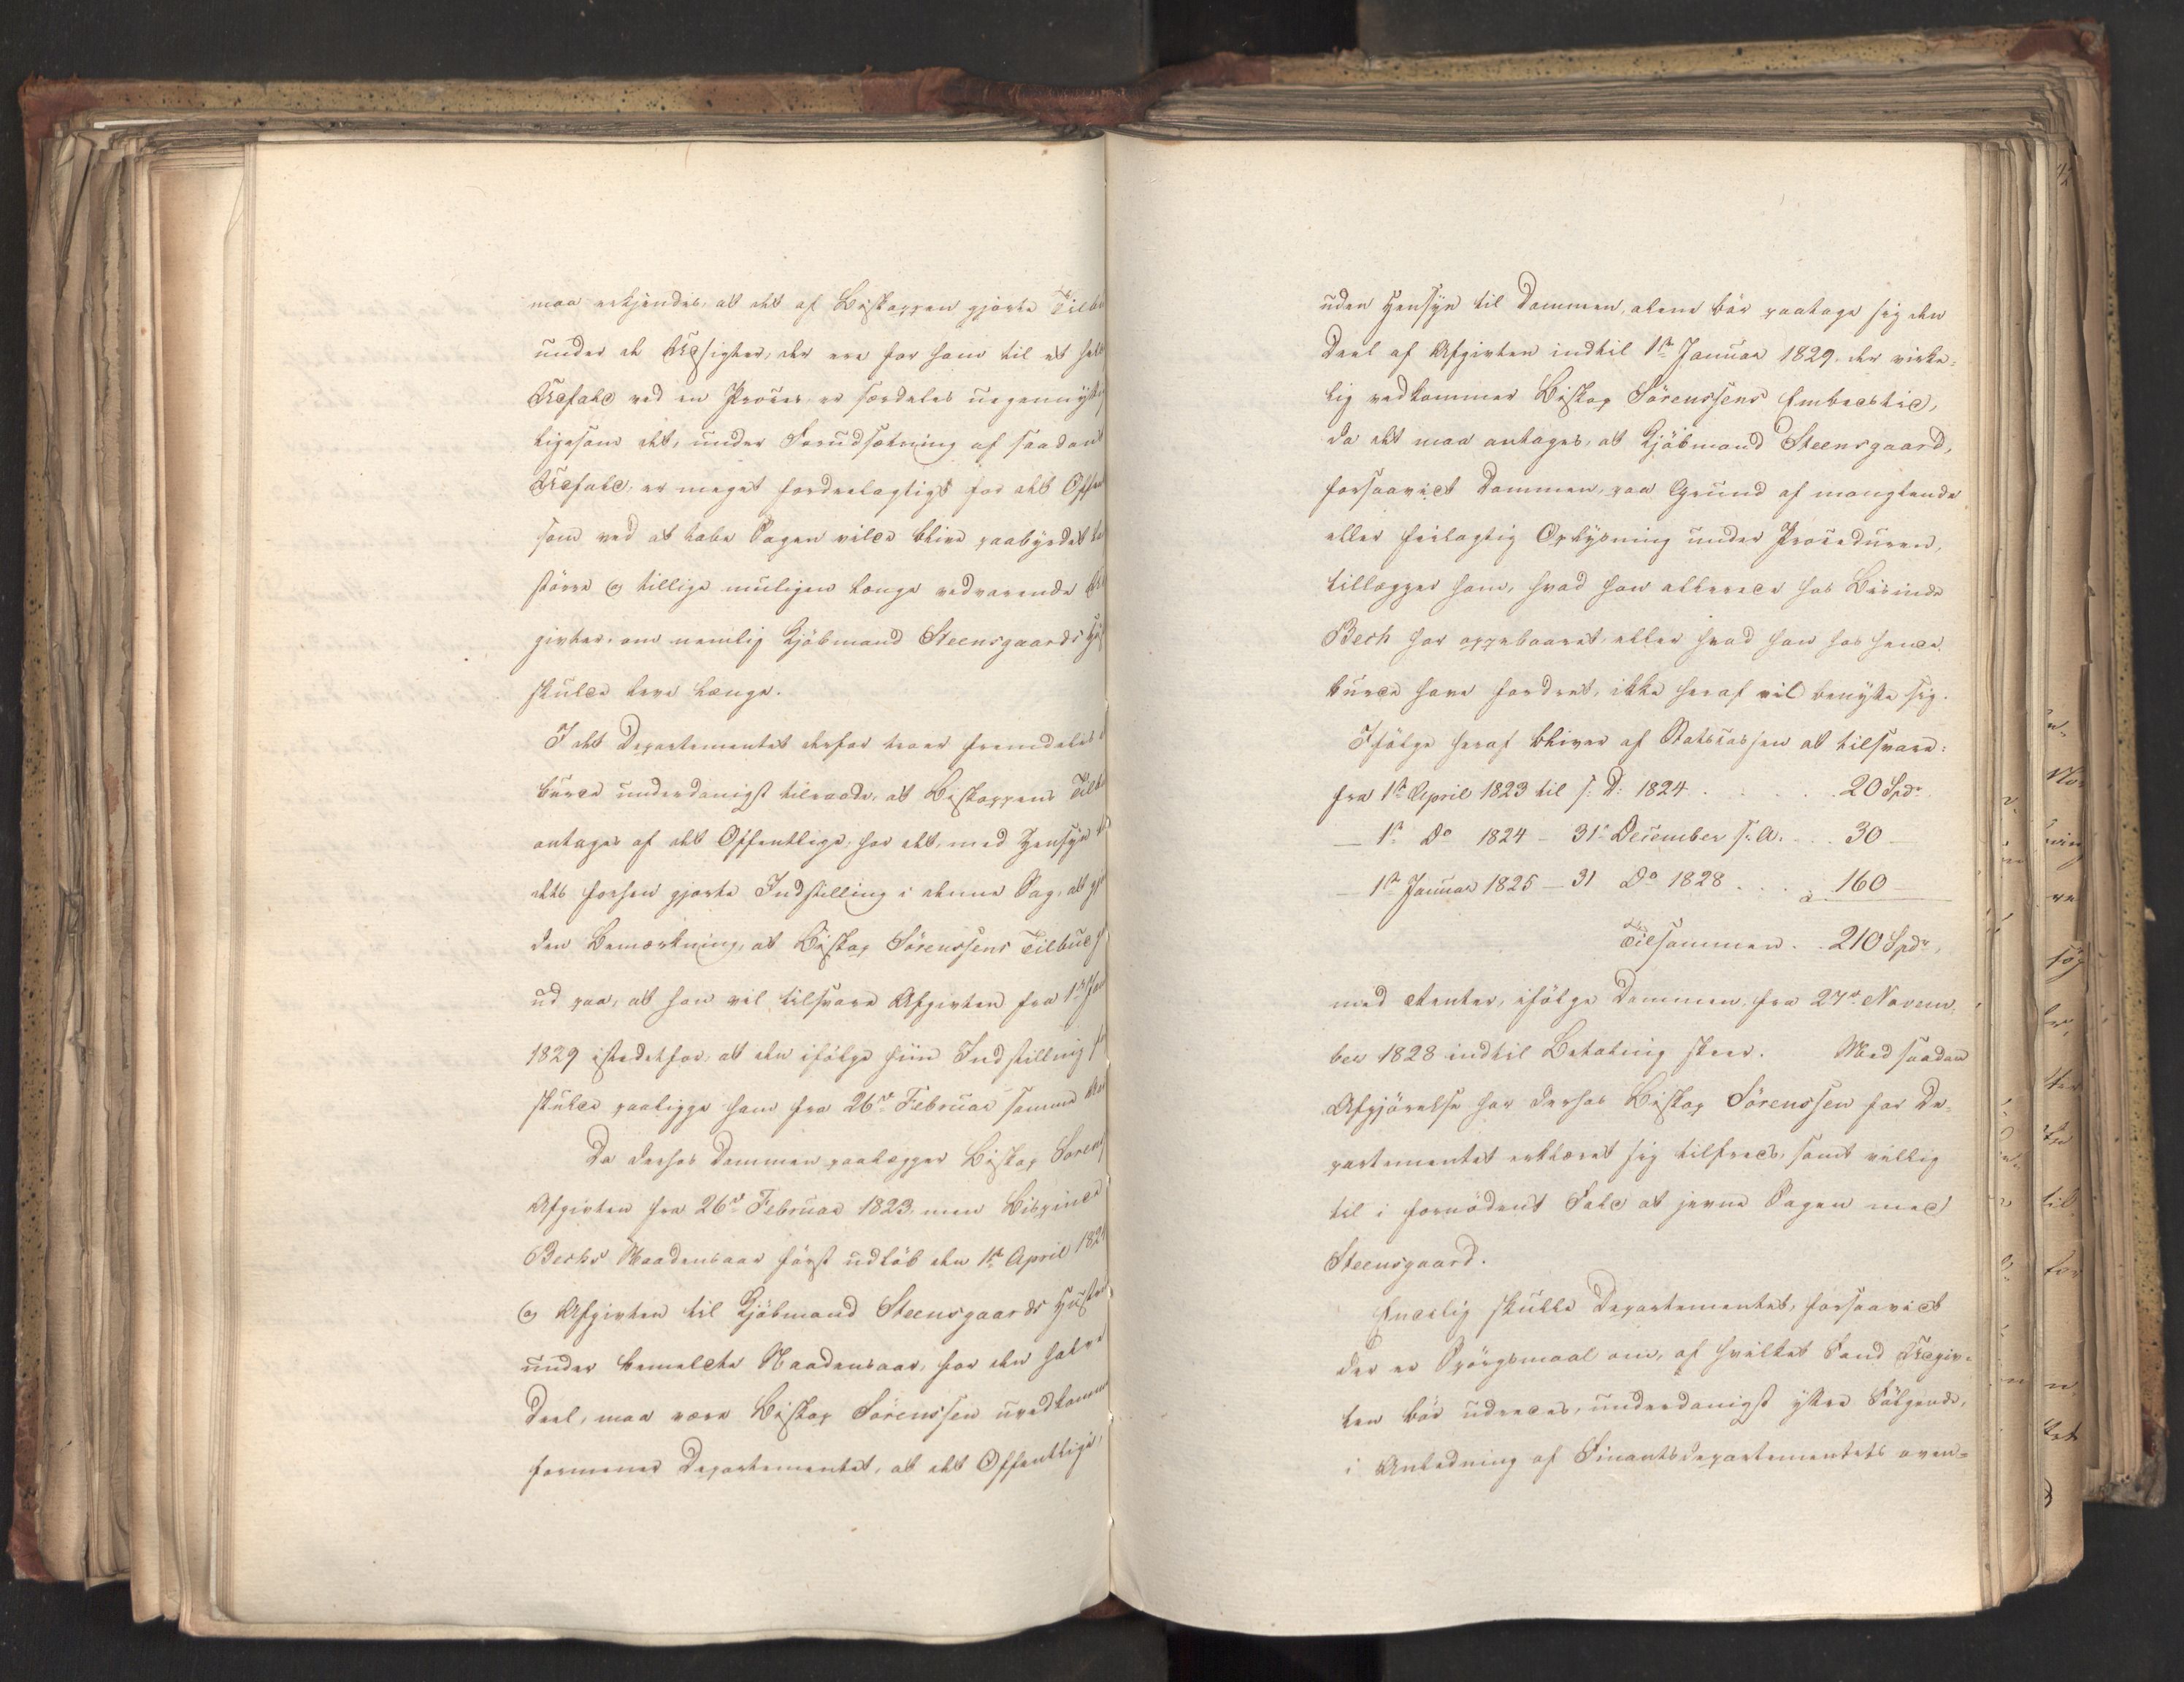 maa erkjendes, at det af Biskoppen gjorte Tilbu
under de Udsigter, der ere for ham til et hel
Udfald ved en Proces er særdeles uegennyttig
ligesom det, under Forudsætning af saadant
Udfald, er meget fordeelagtigt for det Offen
som ved at tabe Sagen vilde blive paabyrdet
större og tillige muligen længe vedvarende Ud
givter, om nemlig Kjöbmand Steensgaards Hu
skulde leve længe.
I det Departementet derfor troer fremdeles
burde underdanigst tilraade, at Biskoppens Tilb
antages af det Offentlige, har det, med Hensyn
dets forhen gjorte Indstilling i denne Sag, at gj
den Bemærkning, at Biskop Sörenssens Tilbud
ud paa, at han vil tilsvare Afgivten fra 1ste Jan
1829 istedetfor, at den ifölge hiin Indstilling
skulde paaligge ham fra 26de Februar samme Aar
Da derhos Dommen paalægger Biskop Sörens
Afgivten fra 26de Februar 1823, men Bispinde
Bechs Naadensaar först udlöb den 1ste April 182
og Afgivten til Kjöbmand Steensgaards Hustru
under bemeldte Naadensaar, for den halve
Deel, maa være Biskop Sörenssen uvedkomm
formener Departementet, at det Offentlige,
uden Hensyn til Dommen, alene bör paatage sig den
Deel af Afgivten indtil 1ste Januar 1829, der virke-
lig vedkommer Biskop Sörenssens Embedstid,
da det maa antages, at Kjöbmand Steensgaard,
forsaavidt Dommen, paa Grund af manglende
eller feilagtig Oplysning under Proceduren,
tillægger ham, hvad han allerede hos Bispinde
Bech har oppebaaret, eller hvad han hos hende
burde have fordret, ikke heraf vil benytte sig.
Ifölge heraf bliver af Statscassen at tilsvare:
fra 1ste April 1823 til s: D: 1824 . . . 20 Spdr
— 1ste Do 1824 – 31te December s. A. . . 30 —
— 1ste Januar 1825 – 31 Do 1828 . . . . 160 —
Tilsammen . . 210 Spdr,
med Renter, ifölge Dommen, fra 27de Novem-
ber 1828 indtil Betaling skeer. Med saadan
Afgjörelse har derhos Biskop Sörenssen for De-
partementet erklæret sig tilfreds, samt villig
til i fornödent Fald at jevne Sagen med
Steensgaard.
Endelig skulle Departementet, forsaavidt
der er Spörgsmaal om, af hvilket Fond Udgiv-
ten bör udredes, underdanigst yttre Fölgende,
i Anledning af Finantsdepartementets oven-